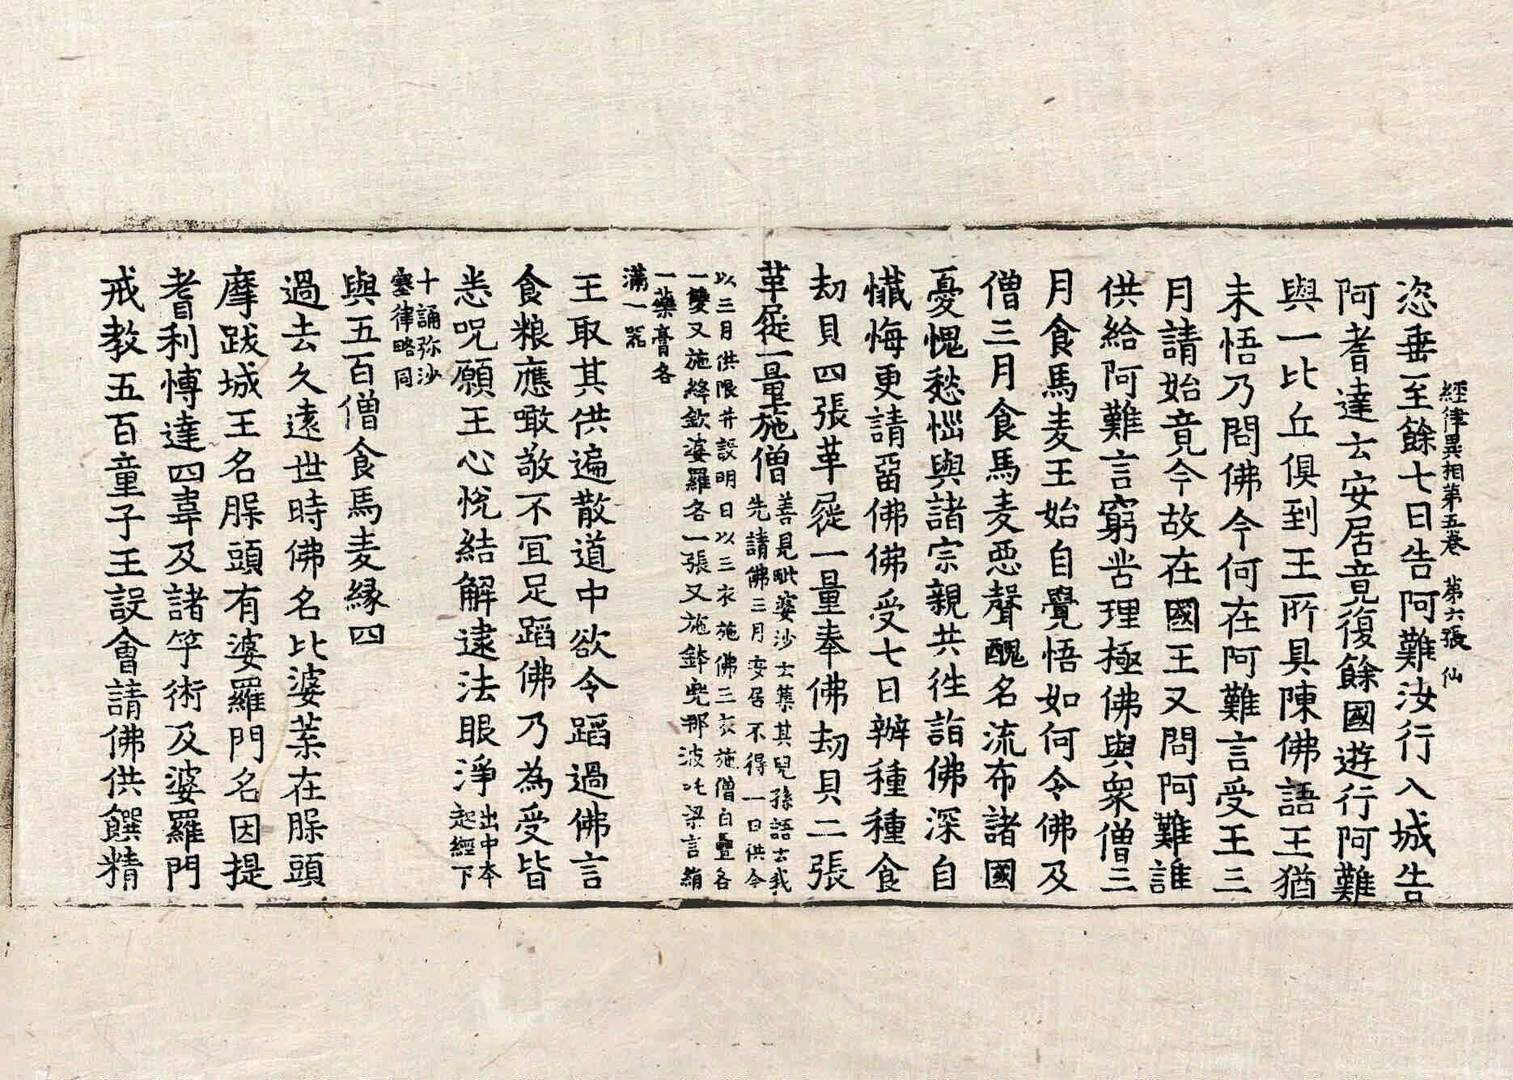 經律異相第五卷　第六張　仙
恣垂至餘七日告阿難汝行入城告
阿耆達云安居竟復餘國遊行阿難
與一比丘俱到王所具陳佛語王猶
未悟乃問佛今何在阿難言受王三
月請始竟今故在國王又問阿難誰
供給阿難言窮苦理極佛與衆僧三
月食馬麦王始自覺悟如何令佛及
僧三月食馬麦惡聲醜名流布諸國
憂愧愁惱與諸宗親共往詣佛深自
懺悔更請留佛佛受七日辦種種食
劫貝四張革屣一量奉佛劫貝二張
革屣一量施僧
善見毗婆沙云藥其兒孫語云我
先請佛三月安居不得一日供今
以三月供限并設明日以三衣施佛三衣施僧白疊各
一雙又施絳欽婆羅各一張又施鉢兜那波吒梁言絹
一藥膏各
滿一器
王取其供遍散道中欲令蹈過佛言
食粮應噉敬不宜足蹈佛乃為受皆
悉呪願王心悅結解逮法眼淨
出中本
起經下
十誦弥沙
塞律略同
與五百僧食馬麦緣四
過去久遠世時佛名比婆葉在脲頭
摩跋城王名脲頭有婆羅門名因提
耆利愽達四韋及諸竿術及婆羅門
戒教五百童子王設會請佛供饌精